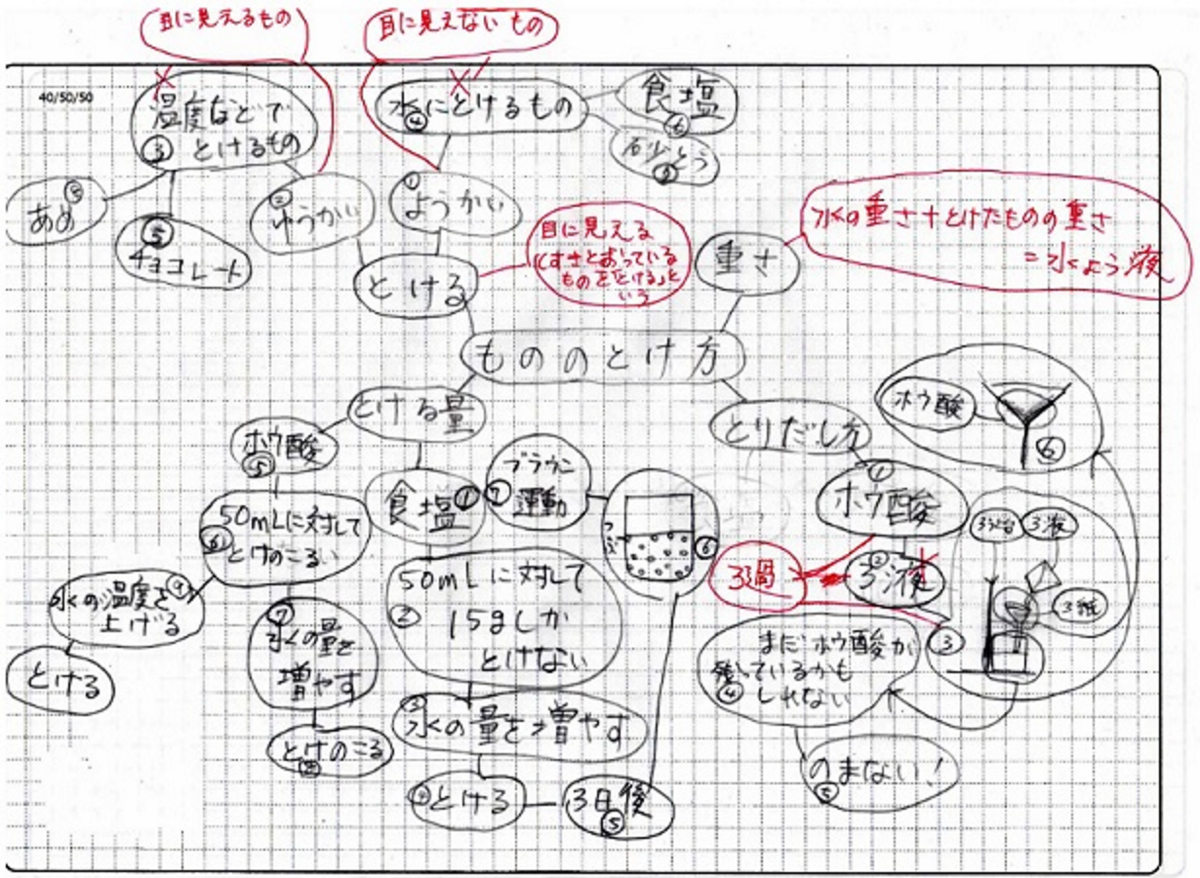 目に見えるもの
目に見えないもの
40/50/50
温度などで
③とけるもの
水にとけるもの
④
食塩
⑥
あめ
⑤
チョコレート
②
ゆうかい
①
ようかい
とける
目に見える
ものを「とける」と
いう
重さ
水の重さ+とけたものの重さ
=水よう液
もののとけ方
とける量
ホウ酸
⑤
50mLに対して
⑥とけのこる
水の温度を
上げる
とける
⑦
水の量を
増やす
とけのこる
⑧
食塩①
50mLに対して
② 15gしか
とけない
③
水の量を増やす
④とける
3日後
⑤
ブラウン
⑦運動
つぶ
⑥
とりだし方
①
ホウ酸
ろ過
②
ろ液
③
ろ液
ろ紙
まだホウ酸が
残っているかも
④しれない
のまない!
⑤
ホウ酸
⑥